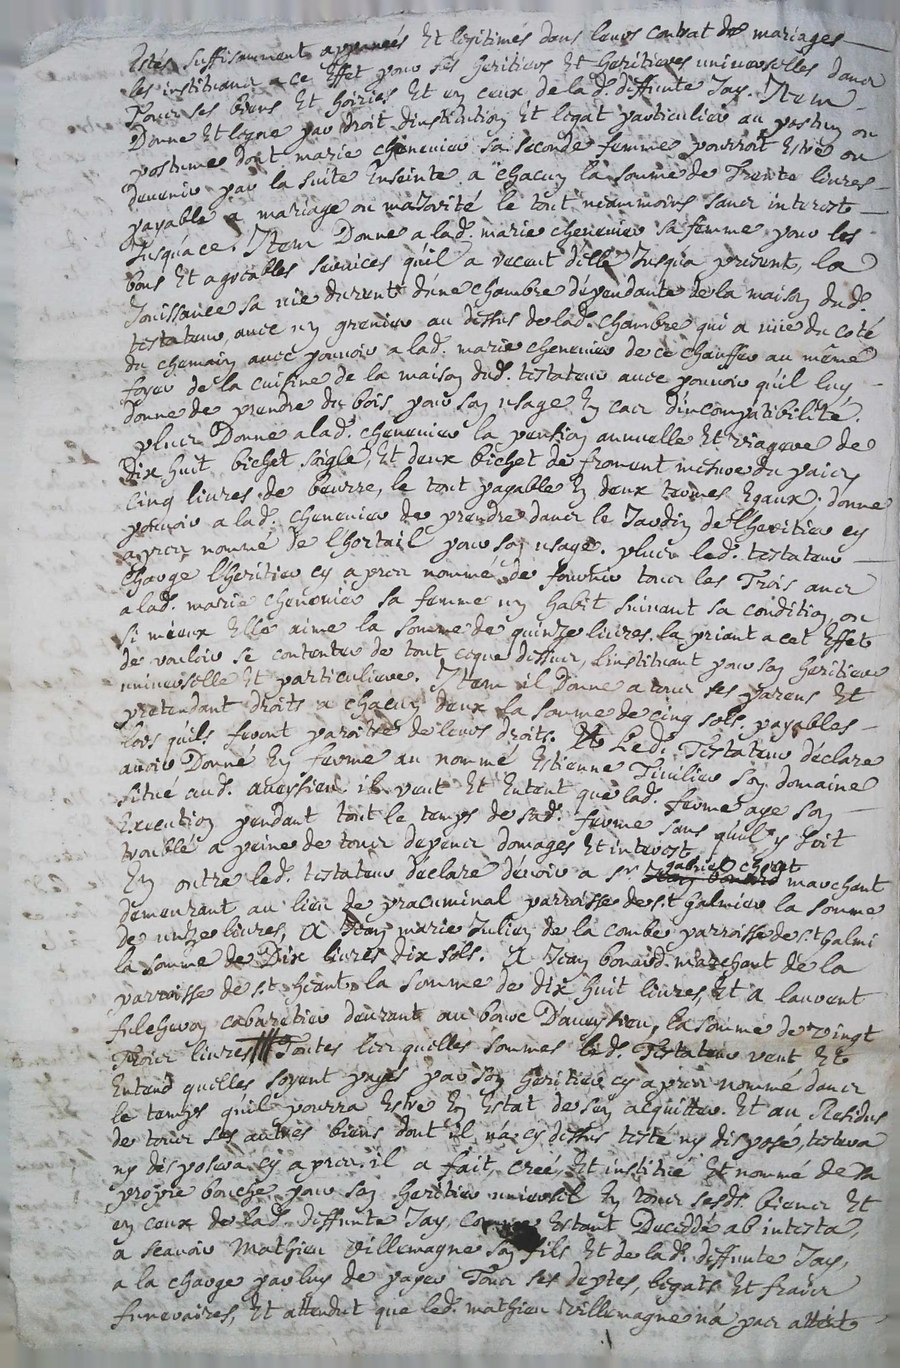 Estés suffisamment appannés Et legitimés dans leurs contrat de mariages
les instituant a ce Effet pour ses heritiers Et heritieres universelles dans
tous ses biens Et hoiries Et en ceux de lad. deffunte Jay. Item
Donne Et legue par droit dinstitution Et legat particulier au postum ou
postume dont marie chenevier sa seconde femme pourroit Estre ou
devenir par la suite Enseinte a chacun la somme de Trente livres
payable a mariage ou majorité le tout neammoins sans interest
Jusquace. Item Donne a lad. marie chenevier sa femme pour les
bons Et agréables services quil a receut d'elle Jusqua present, la
Jouissance sa vie durent dune chambre dependante de la maison dud.
testateur, avec un grenier au dessus de lad. chambre qui a viie du coté
du chemain avec pouvoir a lad. marie chenevier de ce chauffer au même
foyer de la cuisine de la maison dud. testateur avec pouvoir qu'il luy
donne de prendre du bois pour son usage En cas d'incompatibilité.
plus Donne a lad. chenevier la pension annuelle Et viagere de
Dix huit bichet soigle, Et deux bichet de froment mesure du païs
cinq livres de beurre, le tout payable En deux termes Egaux; donne
pouvoir a lad. chenevier de prendre dans le Jardin de l'heritier cy
apres nommé de l'hortail pour son usage. plus led. testateur
charge l'heritier cy apres nommé de fournir tous les Trois ans
a lad. marie chenevier sa femme un habit suivant sa condition ou
si mieux Elle aime la somme de quinze livres. la priant a cet Effet
de vouloir se contenter de tout ceque dessus, linstituant pour son heritiere
universelle Et particuliere. Item il Donne a tous ses parens Et
pretendant droits a chacun deux la somme de cinq sols. payables
lors quils feront paroitre de leurs droits. Led. Testateur déclare
avoir Donné En ferme au nommé Estienne Tivilier son domaine
situé aud. aveyzieu. il veut Et Entent que lad. ferme aye son
Execution pendant tout le temps de sad. ferme sans quil y soit
troublé a peine de tous depens domages Et interest
En outre led. testateur déclare dévoir a sr gabriel chirat marchant
demeurant au lieu de vracuminal parroisse de st Galmier la somme
de unze livres, a Jean marie Julien de la combe parroisse de st Galmi
la somme de Dix livres dix sols. a Jean bonaud marchant de la
parroisse de st heant la somme de dix huit livres, Et a laurent
fulchiron cabaretier deurant au bourc D'aveyzieu, la somme de vingt
Trois livres Toutes les quelles sommes led. Testateur veut Et
Entend quelles soyent payés par son heritier cy apres nommé dans
le temps qu'il pourra Estre En Estat de sen acquitter. Et au Residus
de tous ses autres biens dont il n'a cy dessus testé ny disposé, testera
ny disposera cy apres. il a fait, créé, Et institué Et nommé de sa
propre bouche pour son heritier universel En tous sesds. biens Et
en ceux de lad. deffunte Jay, comme Estant Decedée ab intesta,
a scavoir Mathieu villemagne son fils Et de lad. deffunte Jay,
a la charge par luy de payer Tous ses deptes, legats Et fraix
funeraires, Et attendut que led. mathieu villemagne n'a pas attint